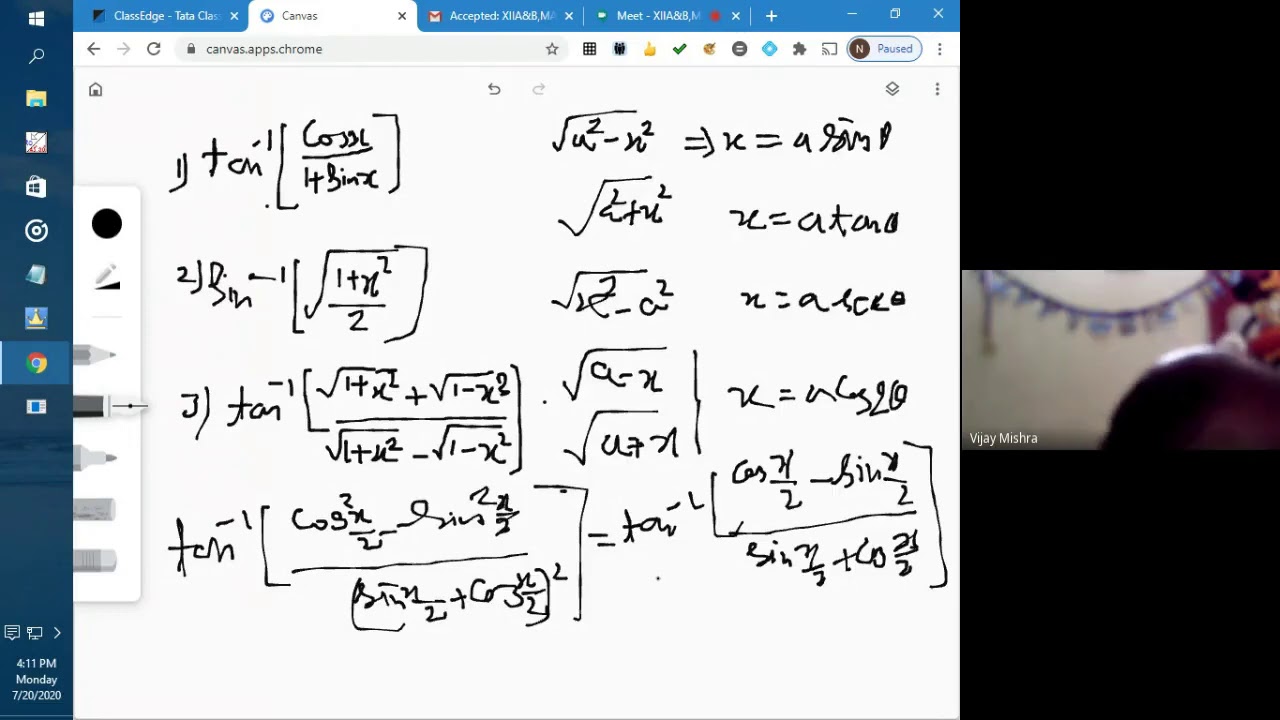 ClassEdge - Tata Clas
Canvas
Accepted: XIIA&B,MA
Meet - XIIA&B,M
canvas.apps.chrome
N Paused
1) tan⁻¹[cosx/(1+sinx)]
√(a²-x²) ⇒ x = a sinθ
√(a²+x²) x = a tanθ
2) sin⁻¹[√((1+x²)/2)]
√(x²-a²) x = a secθ
3) tan⁻¹[(√(1+x²)+√(1-x²))/(√(1+x²)-√(1-x²))]
√(a-x)
√(a+x) x = a cos2θ
tan⁻¹[(cos²x/2-sin²x/2)/(sinx/2+cosx/2)²] = tan⁻¹[(cosx/2-sinx/2)/(sinx/2+cosx/2)]
Vijay Mishra
4:11 PM
Monday
7/20/2020